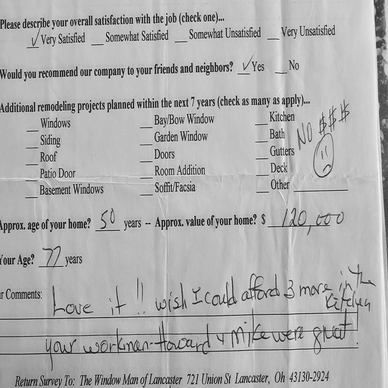 Please describe your overall satisfaction with the job (check one)...
✓ Very Satisfied __ Somewhat Satisfied __ Somewhat Unsatisfied __ Very Unsatisfied
Would you recommend our company to your friends and neighbors? ✓ Yes __ No
Additional remodeling projects planned within the next 7 years (check as many as apply)...
__ Windows __ Bay/Bow Window __ Kitchen
__ Siding __ Garden Window __ Bath NO $$$
__ Roof __ Doors __ Gutters
__ Patio Door __ Room Addition __ Deck
__ Basement Windows __ Soffit/Facsia __ Other
Approx. age of your home? 50 years -- Approx. value of your home? $ 120,000
Your Age? 77 years
r Comments: Love it!! wish I could afford 3 more in the Kitchen
your workman-Howard & Mike were great!
Return Survey To: The Window Man of Lancaster 721 Union St Lancaster, Oh 43130-2924